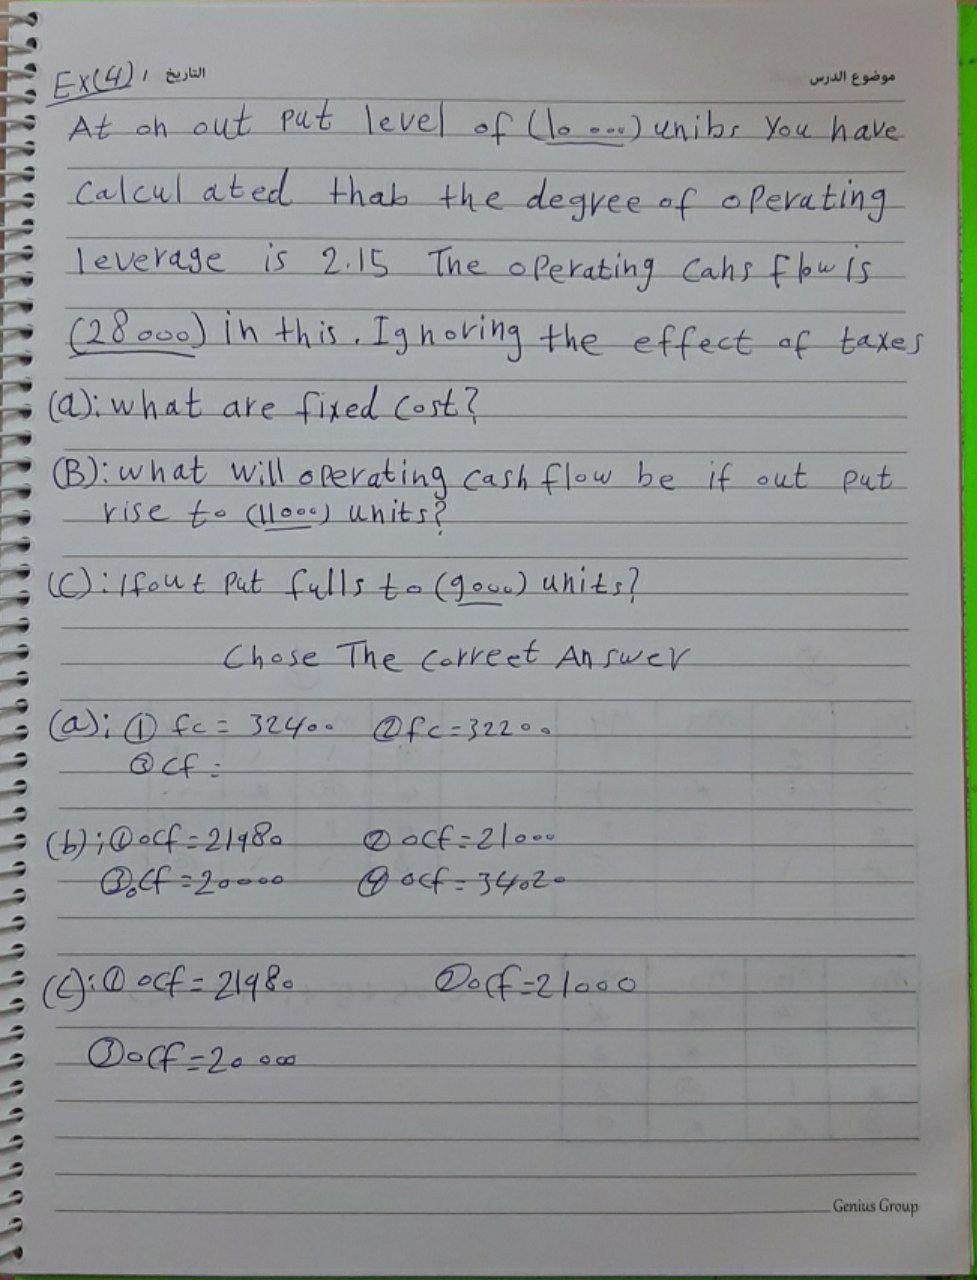 Ex(4): التاريخ موضوع الدرس
At oh out put level of (10 000) unibs You have
calculated thab the degree of operating
leverage is 2.15 The operating Cahs flow is
(28000) in this. Ignoring the effect of taxes
(a): what are fixed Cost?
(B): what will operating cash flow be if out put
rise to (11000) units?
(C): If out put falls to (9000) units?
Chose The correet Answer
(a): ① fc = 32400 ② fc = 32200
③ cf =
(b): ① ocf = 21980 ② ocf = 21000
③ ocf = 20000 ④ ocf = 34020
(c): ① ocf = 21980 ② ocf = 21000
③ ocf = 20000
Genius Group